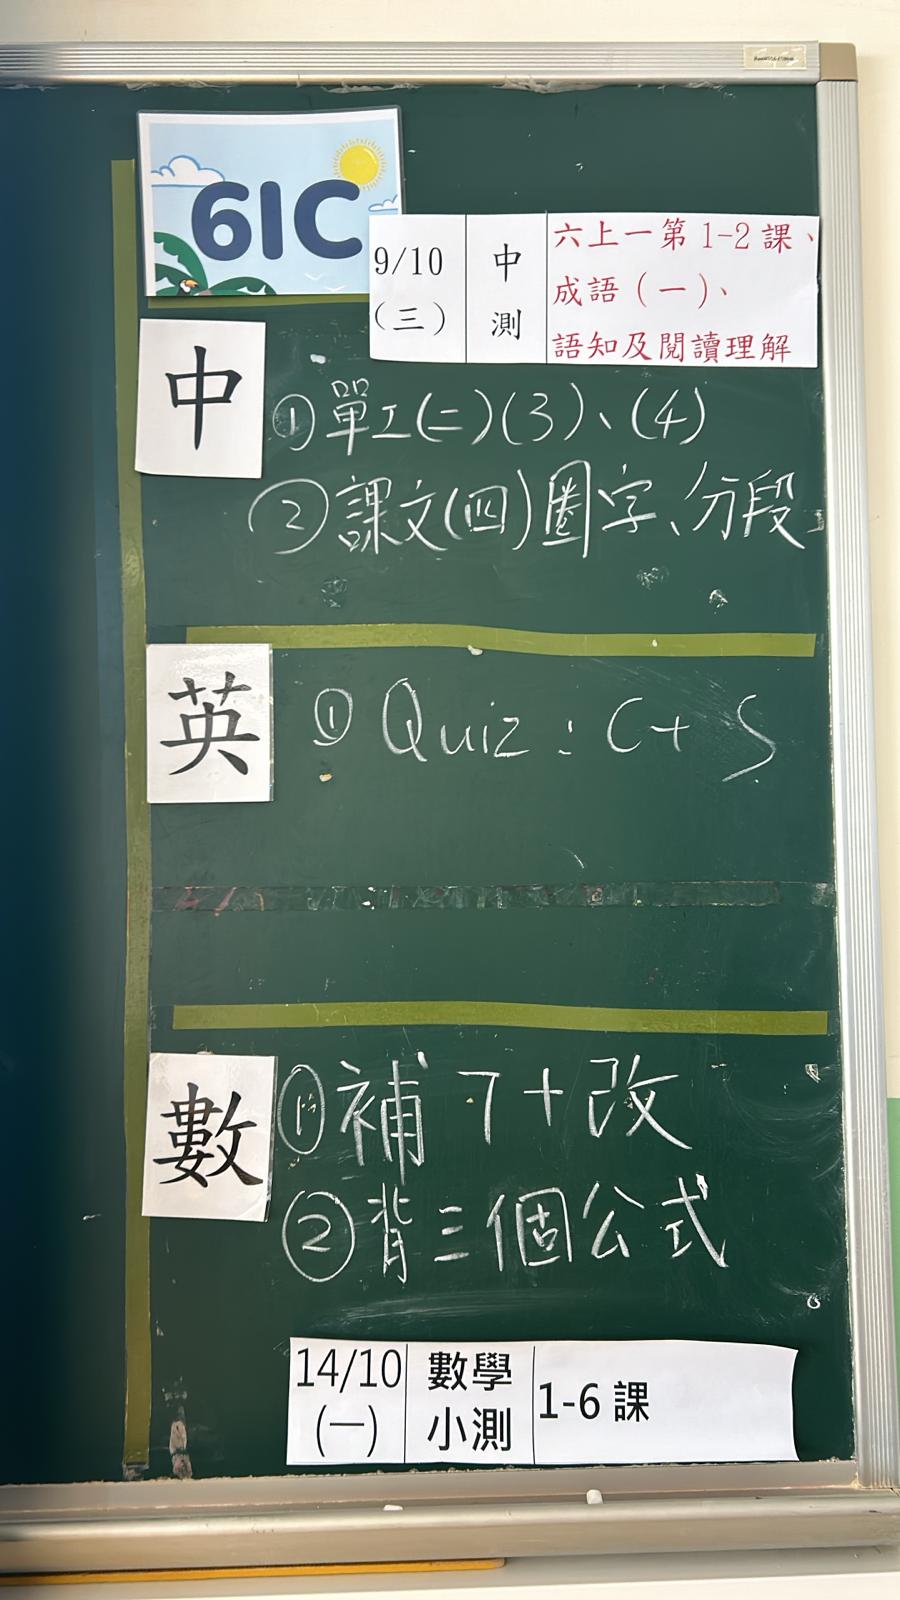 61C
9/10
(三)
中
測
六上一第1-2課、
成語(一)、
語知及閱讀理解
中
①單工(二)(3)、(4)
②課文(四)圈字、分段
英
① Quiz : C+S
數
①補7+改
②背三個公式
14/10
(一)
數學
小測
1-6課